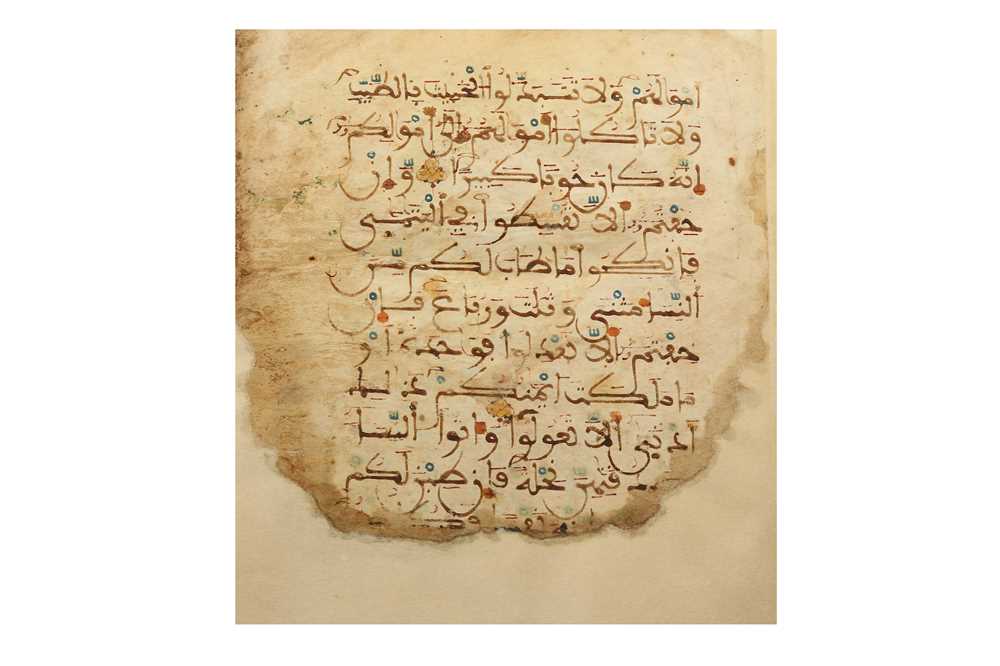 امۡوَٰلَهُمۡ وَلَا تَتَبَدَّلُوا۟ اُ۬لۡخَبِيثَ بِالطَّيِّبِ
وَلَا تَاكُلُوٓا۟ أَمۡوَٰلَهُمُۥٓ إِلَىٰٓ أَمۡوَٰلِكُمُۥٓ
إِنَّهُۥ كَانَ حُوبٗا كَبِيرٗا وَإِنۡ
خِفۡتُمُۥٓ أَلَّا تُقۡسِطُوا۟ فِے اِ۬لۡيَتَٰمَىٰ
فَانكِحُوا۟ مَا طَابَ لَكُم مِّنَ
اَ۬لنِّسَا مَثۡنَىٰ وَثُلَٰثَ وَرُبَٰعَ فَإِنۡ
خِفۡتُمُۥٓ أَلَّا تَعۡدِلُوا۟ فَوَٰحِدَةً اَوۡ
مَا مَلَكَتَ اَيۡمَٰنُكُمۡ ذَٰلِكَ
أَدۡنَىٰٓ أَلَّا تَعُولُوا۟ وَءَاتُوا۟ اُ۬لنِّسَا
نِحۡلَةٗ فَإِن طِبۡنَ لَكُمۡ